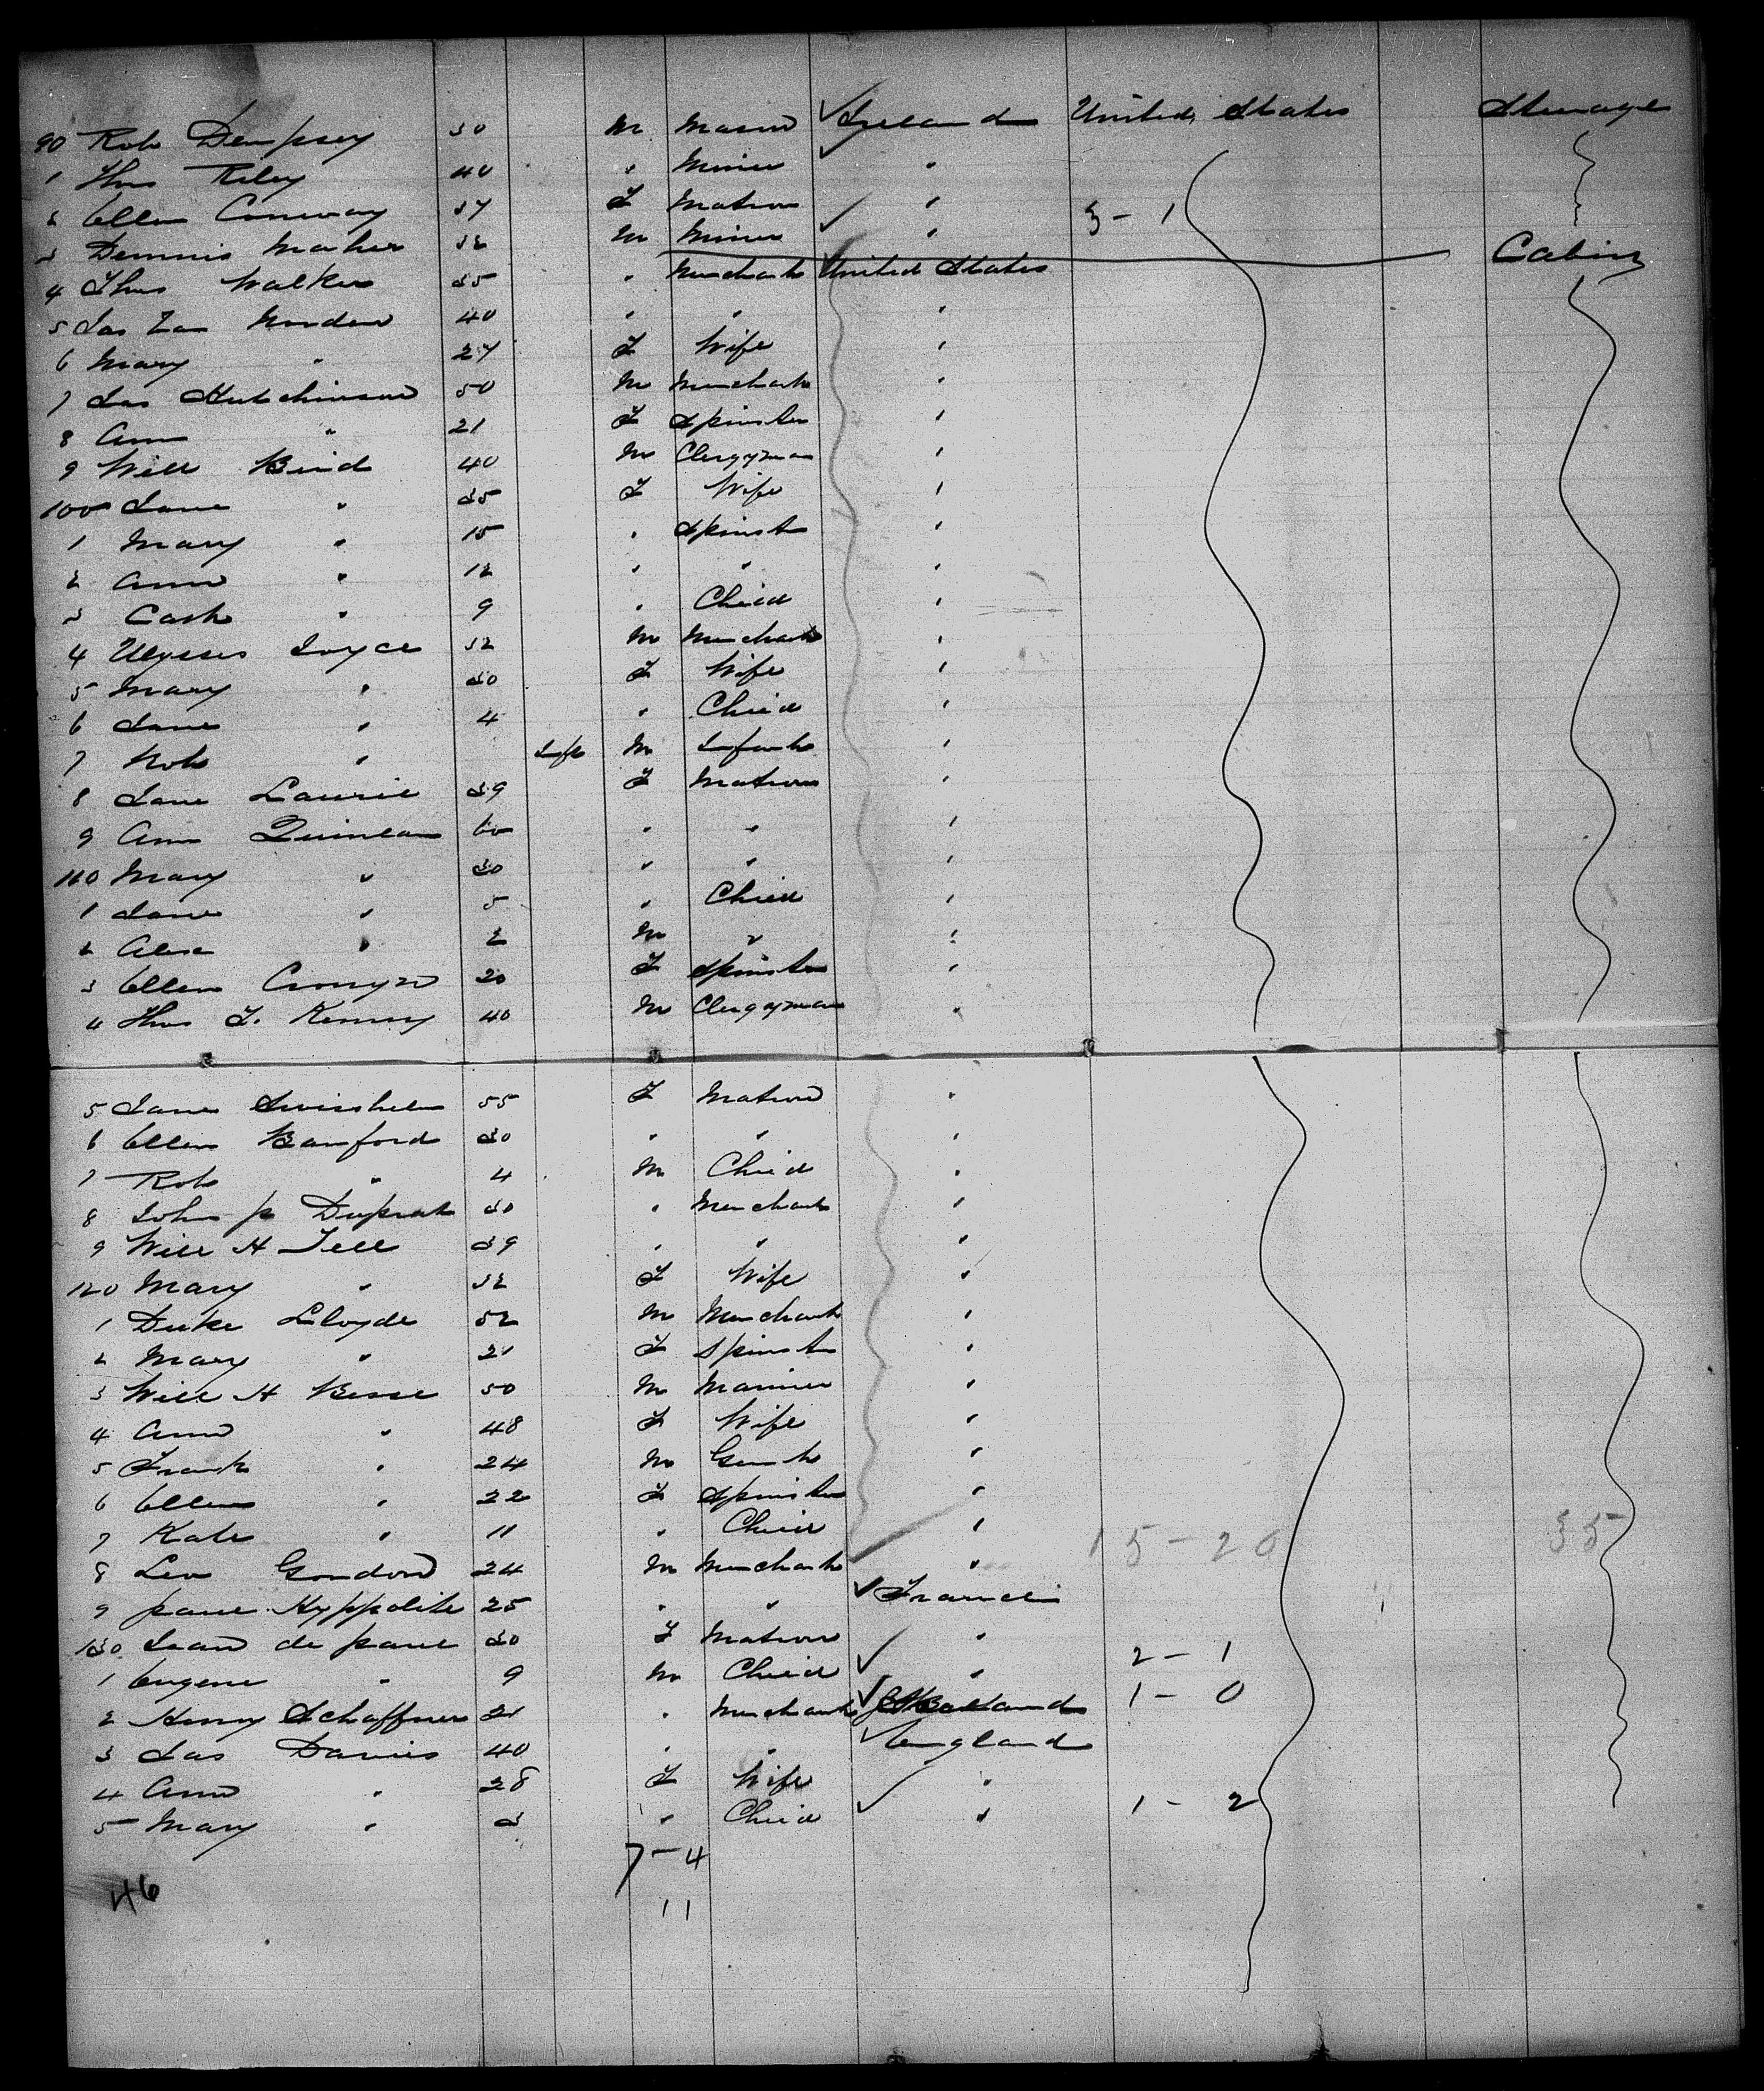 90 Rob Dempsey 30 M Mason Ireland United States Steerage
1 Thos Riley 40 " Miner "
2 Ellen Conway 37 F Matron " 3 - 1
3 Dennis Maher 32 M Miner "
4 Thos Walker 35 " Merchant United States Cabin
5 Jas Van Norden 40 " " "
6 Mary " 27 F Wife "
7 Jas Hutchinson 50 M Merchant "
8 Ann " 21 F Spinster "
9 Will 40 M Clergyman "
100 Jane " 35 F Wife "
1 Mary " 15 " Spinst "
2 Ann " 12 " " "
3 Cath " 9 " Child "
4 Ulysses Joyce 32 M Merchant "
5 Mary " 30 F Wife "
6 Jane " 4 " Child "
7 Rob " Inft M Infant "
8 Jane Laurie 39 F Matron "
9 Ann Quinlan 60 " " "
110 Mary " 30 " " "
1 Jane " 5 " Child "
2 Alex " 2 M " "
3 Ellen Cronyn 20 F Spinster "
4 Thos F. Kenny 40 M Clergyman "
5 Jane Swisshelm 55 F Matron "
6 Ellen Bamford 30 " " "
7 Rob " 4 M Child "
8 John P Duprat 30 " Merchant "
9 Will H Tell 39 " " "
120 Mary " 32 F Wife "
1 Duke Lloyde 52 M Merchant "
2 Mary " 21 F Spinst "
3 Will H Besse 50 M Mariner "
4 Ann " 48 F Wife "
5 Frank " 24 M Gent "
6 Ellen " 22 F Spinster "
7 Kate " 11 " Child " 15 - 20 35
8 Leo Gondon 24 M Merchant "
9 Paul Hyppolite 25 " " France
130 Jean de Paul 30 F Matron "
1 Eugene " 9 M Child " 2 - 1
2 Henry Schaffner 21 " Merchant 1 - 0
3 Jas Davies 40 " " England
4 Ann " 28 F Wife "
5 Mary " 3 " Child " 1 - 2
7 - 4
46
11